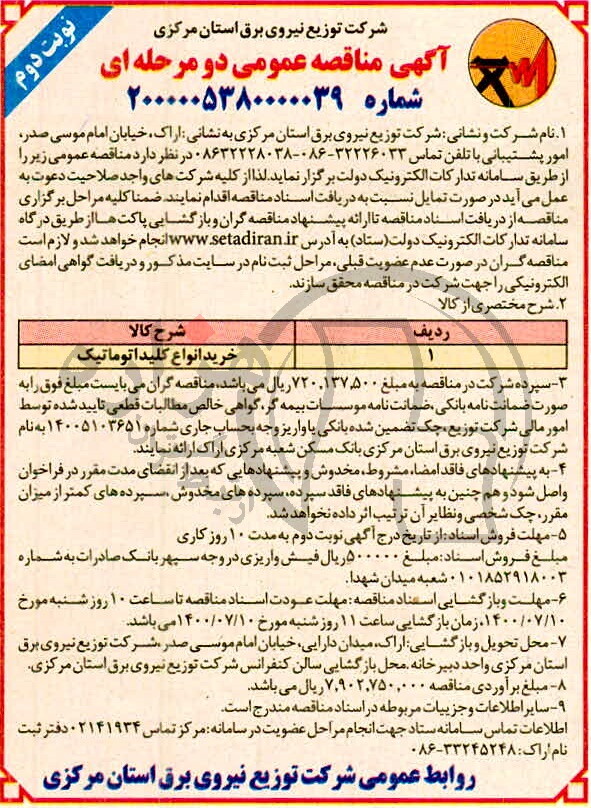 شرکت توزیع نیروی برق استان مرکزی
نوبت دوم
آگهی مناقصه عمومی دو مرحله ای
شماره ۲۰۰۰۰۰۵۳۸۰۰۰۰۰۳۹
۱.نام شرکت و نشانی : شرکت توزیع نیروی برق استان مرکزی به نشانی : اراک، خیابان امام موسی صدر،
امور پشتیبانی با تلفن تماس ۳۲۲۲۶۰۳۳-۰۸۶ -۰۸۶۳۲۲۲۸۰۳۸ در نظر دارد مناقصه عمومی زیر را
از طریق سامانه تدارکات الکترونیک دولت برگزار نماید. لذا از کلیه شرکت های واجد صلاحیت دعوت به
عمل می آید در صورت تمایل نسبت به دریافت اسناد مناقصه اقدام نمایند. ضمنا کلیه مراحل برگزاری
مناقصه از دریافت اسناد مناقصه تا ارائه پیشنهاد مناقصه گران و بازگشایی پاکت ها از طریق درگاه
سامانه تدارکات الکترونیک دولت (ستاد) به آدرس www.setadiran.ir انجام خواهد شد و لازم است
مناقصه گران در صورت عدم عضویت قبلی، مراحل ثبت نام در سایت مذکور و دریافت گواهی امضای
الکترونیکی را جهت شرکت در مناقصه محقق سازند.
۲.شرح مختصری از کالا
ردیف شرح کالا
۱ خرید انواع کلید اتوماتیک
۳-سپرده شرکت در مناقصه به مبلغ ۷۲۰,۱۳۷,۵۰۰ ریال می باشد، مناقصه گران می بایست مبلغ فوق را به
صورت ضمانت نامه بانکی، ضمانت نامه موسسات بیمه گر، گواهی خالص مطالبات قطعی تایید شده توسط
امور مالی شرکت توزیع، چک تضمین شده بانکی یا واریز وجه بحساب جاری شماره ۱۴۰۰۵۱۰۳۶۵۱ به نام
شرکت توزیع نیروی برق استان مرکزی بانک مسکن شعبه مرکزی اراک ارائه نمایند.
۴- به پیشنهادهای فاقد امضا، مشروط، مخدوش و پیشنهادهایی که بعد از انقضای مدت مقرر در فراخوان
واصل شود و هم چنین به پیشنهادهای فاقد سپرده، سپرده های مخدوش، سپرده های کمتر از میزان
مقرر، چک شخصی و نظایر آن ترتیب اثر داده نخواهد شد.
۵-مهلت فروش اسناد : از تاریخ درج آگهی نوبت دوم به مدت ۱۰ روز کاری
مبلغ فروش اسناد : مبلغ ۵۰۰۰۰۰ ریال فیش واریزی در وجه سپهر بانک صادرات به شماره
۰۱۰۱۸۵۲۹۱۸۰۰۳ شعبه میدان شهدا.
۶-مهلت و بازگشایی اسناد مناقصه : مهلت عودت اسناد مناقصه تا ساعت ۱۰ روز شنبه مورخ
۱۴۰۰/۰۷/۱۰، زمان بازگشایی ساعت ۱۱ روز شنبه مورخ ۱۴۰۰/۰۷/۱۰ می باشد.
۷- محل تحویل و بازگشایی : اراک، میدان دارایی، خیابان امام موسی صدر ،شرکت توزیع نیروی برق
استان مرکزی واحد دبیرخانه .محل بازگشایی سالن کنفرانس شرکت توزیع نیروی برق استان مرکزی.
۸- مبلغ برآوردی مناقصه ۷,۹۰۲,۷۵۰,۰۰۰ ریال می باشد.
۹-سایر اطلاعات و جزییات مربوطه در اسناد مناقصه مندرج است.
اطلاعات تماس سامانه ستاد جهت انجام مراحل عضویت در سامانه : مرکز تماس ۰۲۱۴۱۹۳۴ دفتر ثبت
نام اراک : ۳۳۲۴۵۲۴۸-۰۸۶
روابط عمومی شرکت توزیع نیروی برق استان مرکزی